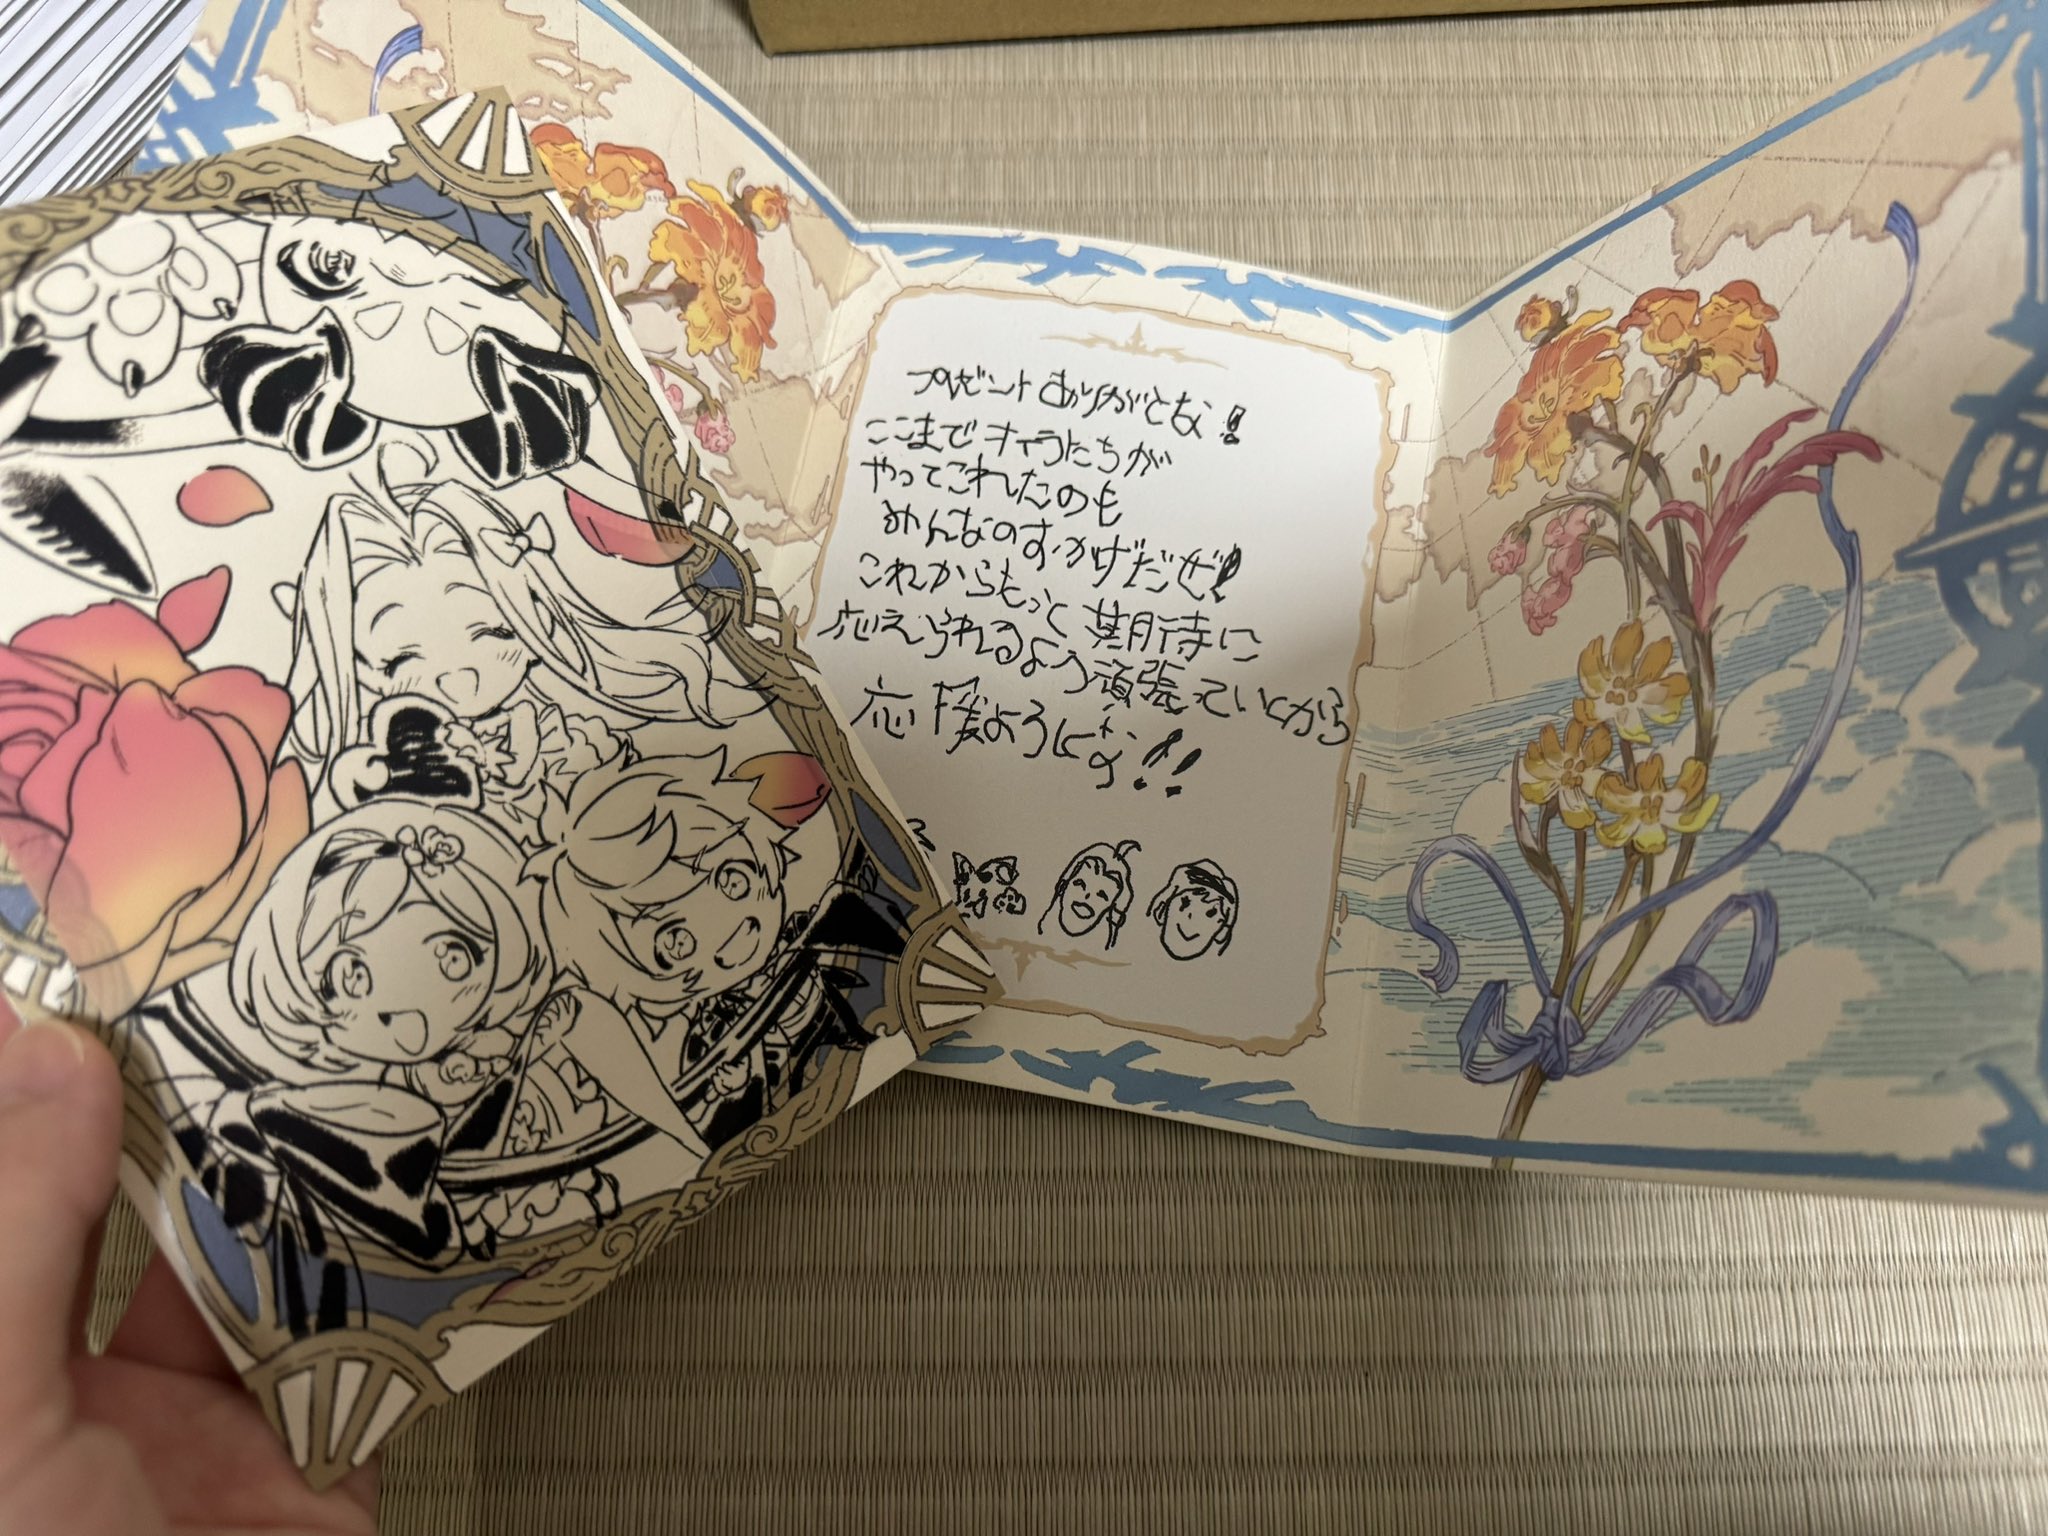 プレゼントありがとな!
ここまでオイラたちが
やってこれたのも
みんなのおかげだぜ!
これからもっと期待に
応えられるよう頑張っていくから
応援よろしくな!!